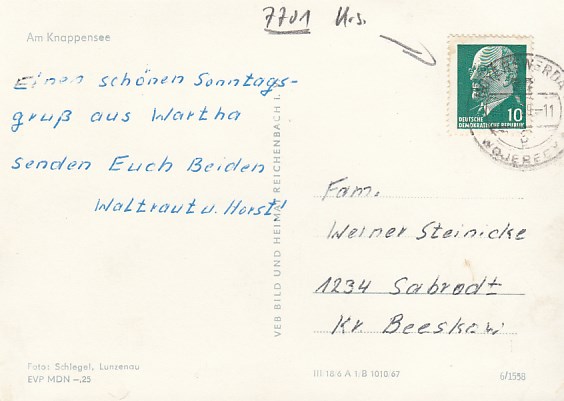 7701 Hs.
Am Knappensee
Einen schönen Sonntags-
gruß aus Wartha
senden Euch Beiden
Waltraut u. Horst!
VEB BILD UND HEIMAT REICHENBACH I.
DEUTSCHE
DEMOKRATISCHE REPUBLIK 10
HOYERSWERDA
-11
WOJERECY
Fam.
Werner Steinicke
1234 Sabrodt
Kr. Beeskow
Foto: Schlegel, Lunzenau
EVP MDN –,25
III/18/6 A 1/B 1010/67
6/1538